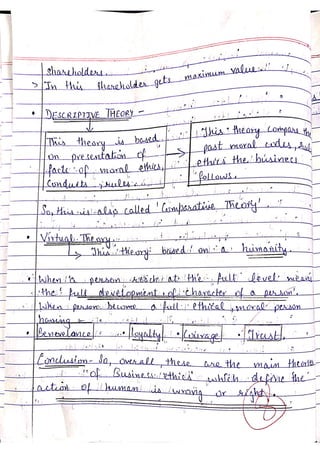 shareholders.
> In this shareholder gets maximum value.
• DESCRIPTIVE THEORY -
This theory is based
on presentation of
facts of moral ethics,
conducts, rules.
This theory compare the
past moral codes, rules
ethics the business
follows.
So, this is also called 'Comparative Theory'.
• Virtual Theory.
> This theory based on a humanity.
• When a person reach at the full level means
the full development of character of a person.
When person become a full ethical, moral person
having -
• Benevolence Loyalty Courage Trust
Conclusion - So, overall, these are the main theories
"of Business ethics" which define the
action of human is wrong or right.